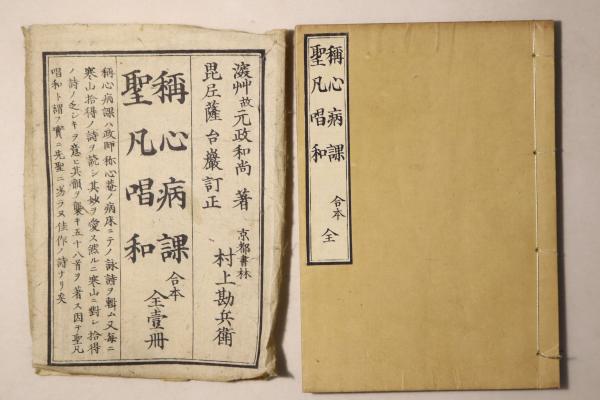 深艸故元政和尚 著
毘丘薩台巖訂正
京都書林 村上勘兵衛
稱心病課
聖凡唱和
合本 全壹冊
稱心病課ハ政師称心菴ノ病床ニテノ詠詩ヲ輯ム又毎ニ
寒山拾得ノ詩ヲ読シ其妙ヲ愛ス然ルニ寒山ニ對シ拾得
ノ詩ノ乏シキヲ意ヒ其韻ヲ襲キ五十八首ヲ著ス因テ聖凡
唱和ト謂フ實ニ先聖ニ劣ラヌ佳作ノ詩ナリ矣
稱心病課
聖凡唱和
合本 全